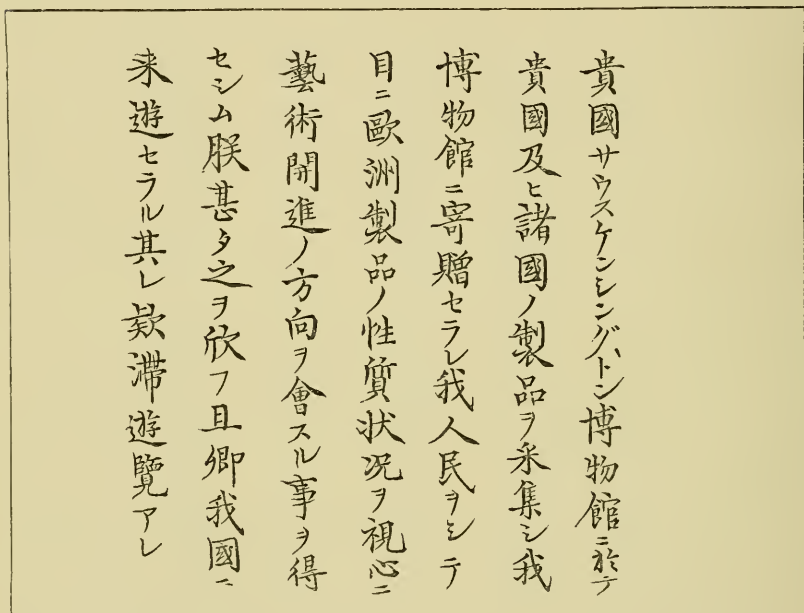 貴國サウスケンシングトン博物館ニ於テ
貴國及ヒ諸國ノ製品ヲ采集シ我
博物館ニ寄贈セラレ我人民ヲシテ
目ニ歐洲製品ノ性質状况ヲ視心ニ
藝術開進ノ方向ヲ會スル事ヲ得
セシム朕甚タ之ヲ欣フ且卿我國ニ
来遊セラル其レ欵滞遊覽アレ